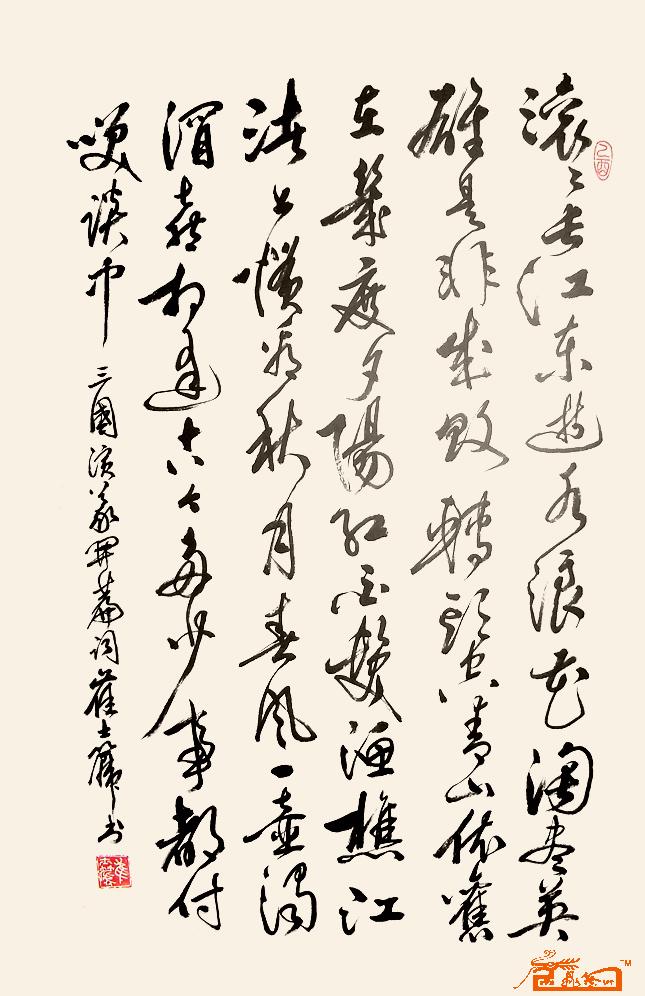 滚〻长江東逝水浪花淘尽英
雄是非成败轉頭空青山依舊
在幾度夕陽红白髮漁樵江
渚上惯看秋月春风一壶濁
酒喜相逢古今多少事都付
笑談中 三國演义開篇词 崔士书